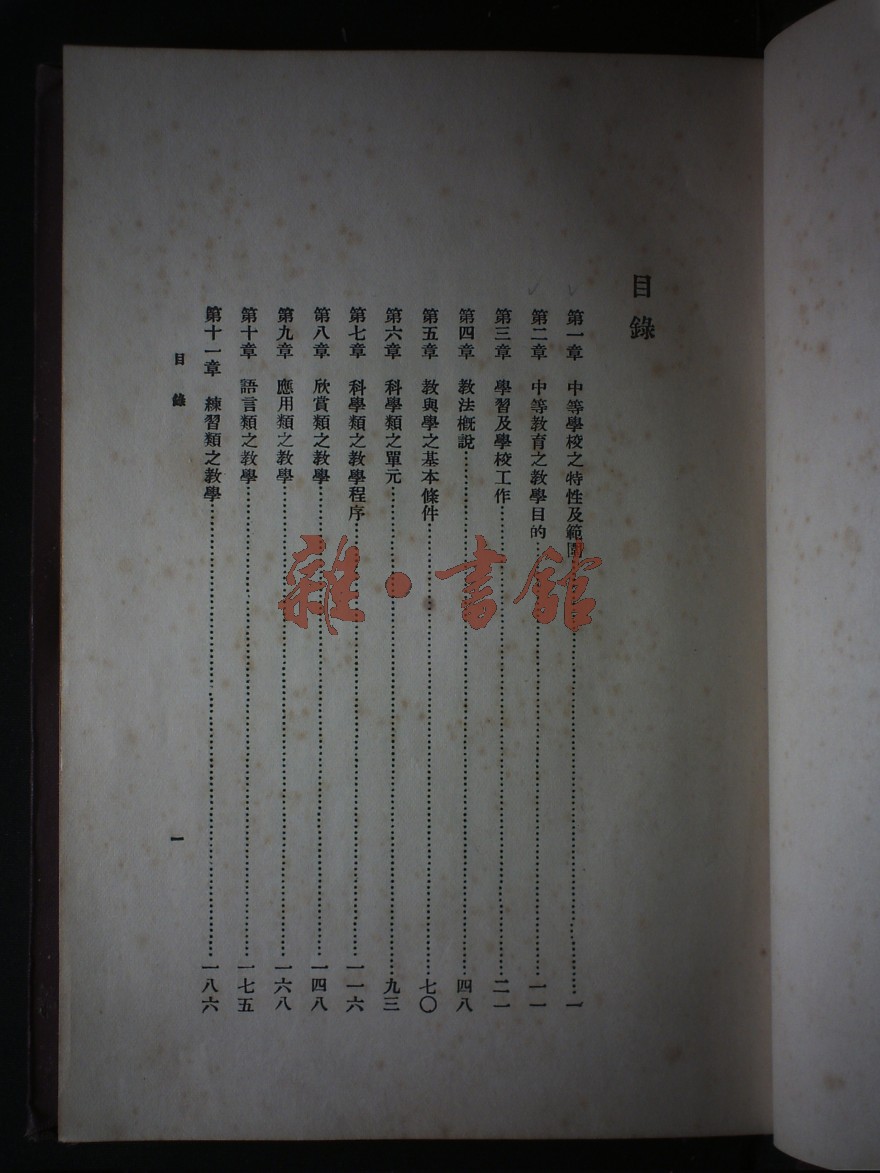 目錄
第一章　中等學校之特性及範圍……一
第二章　中等教育之教學目的……一一
第三章　學習及學校工作……二一
第四章　教法概說……四八
第五章　教與學之基本條件……七〇
第六章　科學類之單元……九三
第七章　科學類之教學程序……一一六
第八章　欣賞類之教學……一四八
第九章　應用類之教學……一六八
第十章　語言類之教學……一七五
第十一章　練習類之教學……一八六
目錄
一
雜·書館